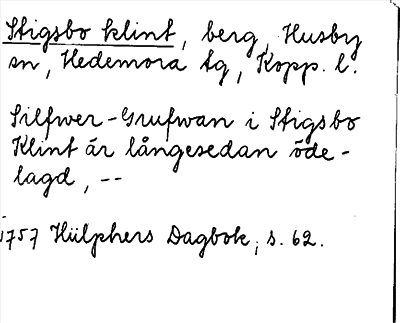 Stigsbo klint, berg, Husby
sn, Hedemora tg, Kopp. l.
Silfwer-Grufwan i Stigsbo
Klint är långesedan öde-
lagd, --
1757 Hülphers Dagbok, s. 62.